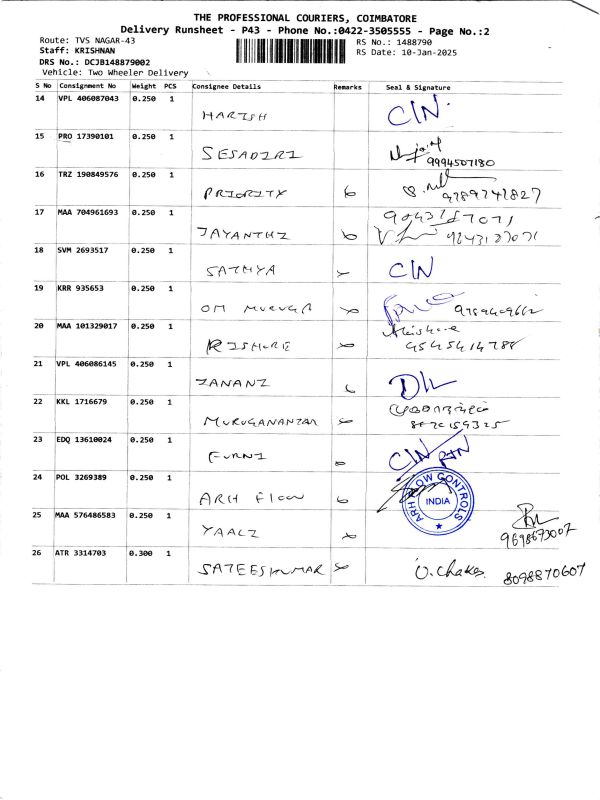 THE PROFESSIONAL COURIERS, COIMBATORE
Delivery Runsheet - P43 - Phone No.:0422-3505555 - Page No.:2
Route: TVS NAGAR-43 RS No.: 1488790
Staff: KRISHNAN RS Date: 10-Jan-2025
DRS No.: DCJB148879002
Vehicle: Two Wheeler Delivery
S No Consignment No Weight PCS Consignee Details Remarks Seal & Signature
14 VPL 406087043 0.250 1
HARISH CIN
15 PRO 17390101 0.250 1
SESADIRI 9994507180
16 TRZ 190849576 0.250 1
PRIORITY 9789741827
17 MAA 704961693 0.250 1
JAYANTHI
18 SVM 2693517 0.250 1
SATHYA CIN
19 KRR 935653 0.250 1
OM MURUGA
20 MAA 101329017 0.250 1
KISHORE
21 VPL 406086145 0.250 1
JANANI
22 KKL 1716679 0.250 1
MURUGANANTAN
23 EDQ 13610024 0.250 1
FURNI CIN
24 POL 3269389 0.250 1
ARH FLOW ARH FLOW CONTROLS INDIA
25 MAA 576486583 0.250 1
YAALI 9698673007
26 ATR 3314703 0.300 1
SATEESKUMAR 8098870607